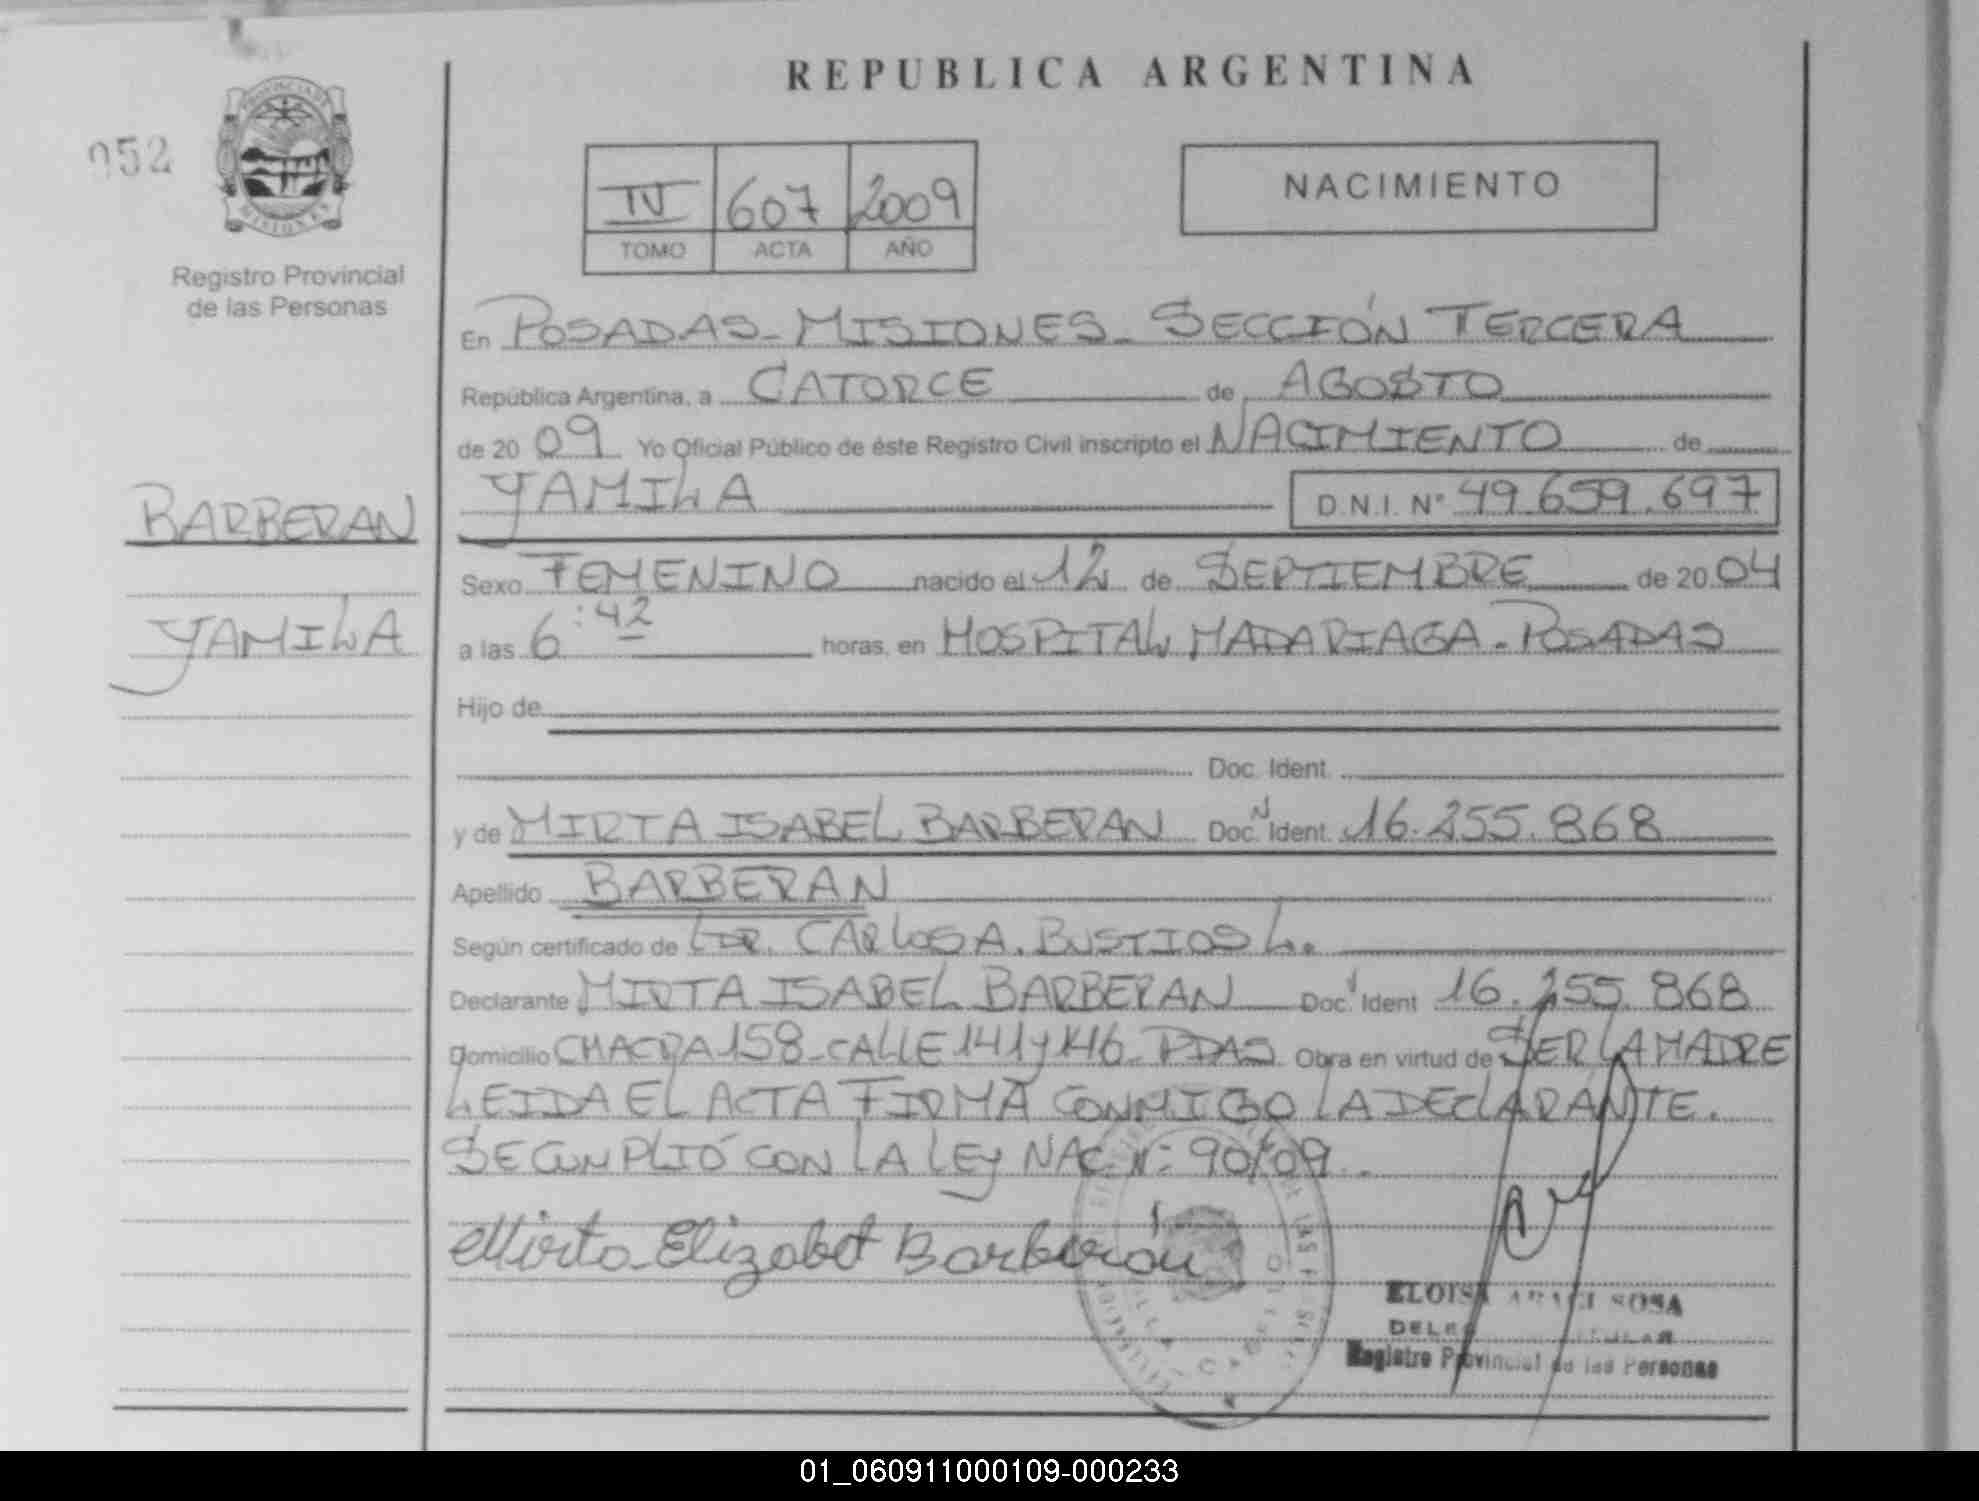 REPUBLICA ARGENTINA
052
PROVINCIA DE
MISIONES
Registro Provincial
de las Personas
IV 607 2009
TOMO ACTA AÑO
NACIMIENTO
En POSADAS - MISIONES - SECCIÓN TERCERA
República Argentina, a CATORCE de AGOSTO
de 20 09 Yo Oficial Público de éste Registro Civil inscripto el NACIMIENTO de
YAMILA D.N.I. N° 49.659.697
BARBERAN
YAMILA
Sexo FEMENINO nacido el 12 de SEPTIEMBRE de 20 04
a las 6:42 horas, en HOSPITAL MADARIAGA - POSADAS
Hijo de
Doc. Ident.
y de MIRTA ISABEL BARBERAN Doc. N Ident. 16.255.868
Apellido BARBERAN
Según certificado de DR. CARLOS A. BUSTIOS L.
Declarante MIRTA ISABEL BARBERAN Doc. Ident 16.255.868
Domicilio CHACRA 158 - CALLE 141 y 146 - PDAS Obra en virtud de SER LA MADRE
LEIDA EL ACTA FIRMA CONMIGO LA DECLARANTE.
SE CUMPLIÓ CON LA LEY NAC. N: 90/09
Mirta Elizabet Barberán
SOSA
Registro Provincial de las Personas
01_060911000109-000233